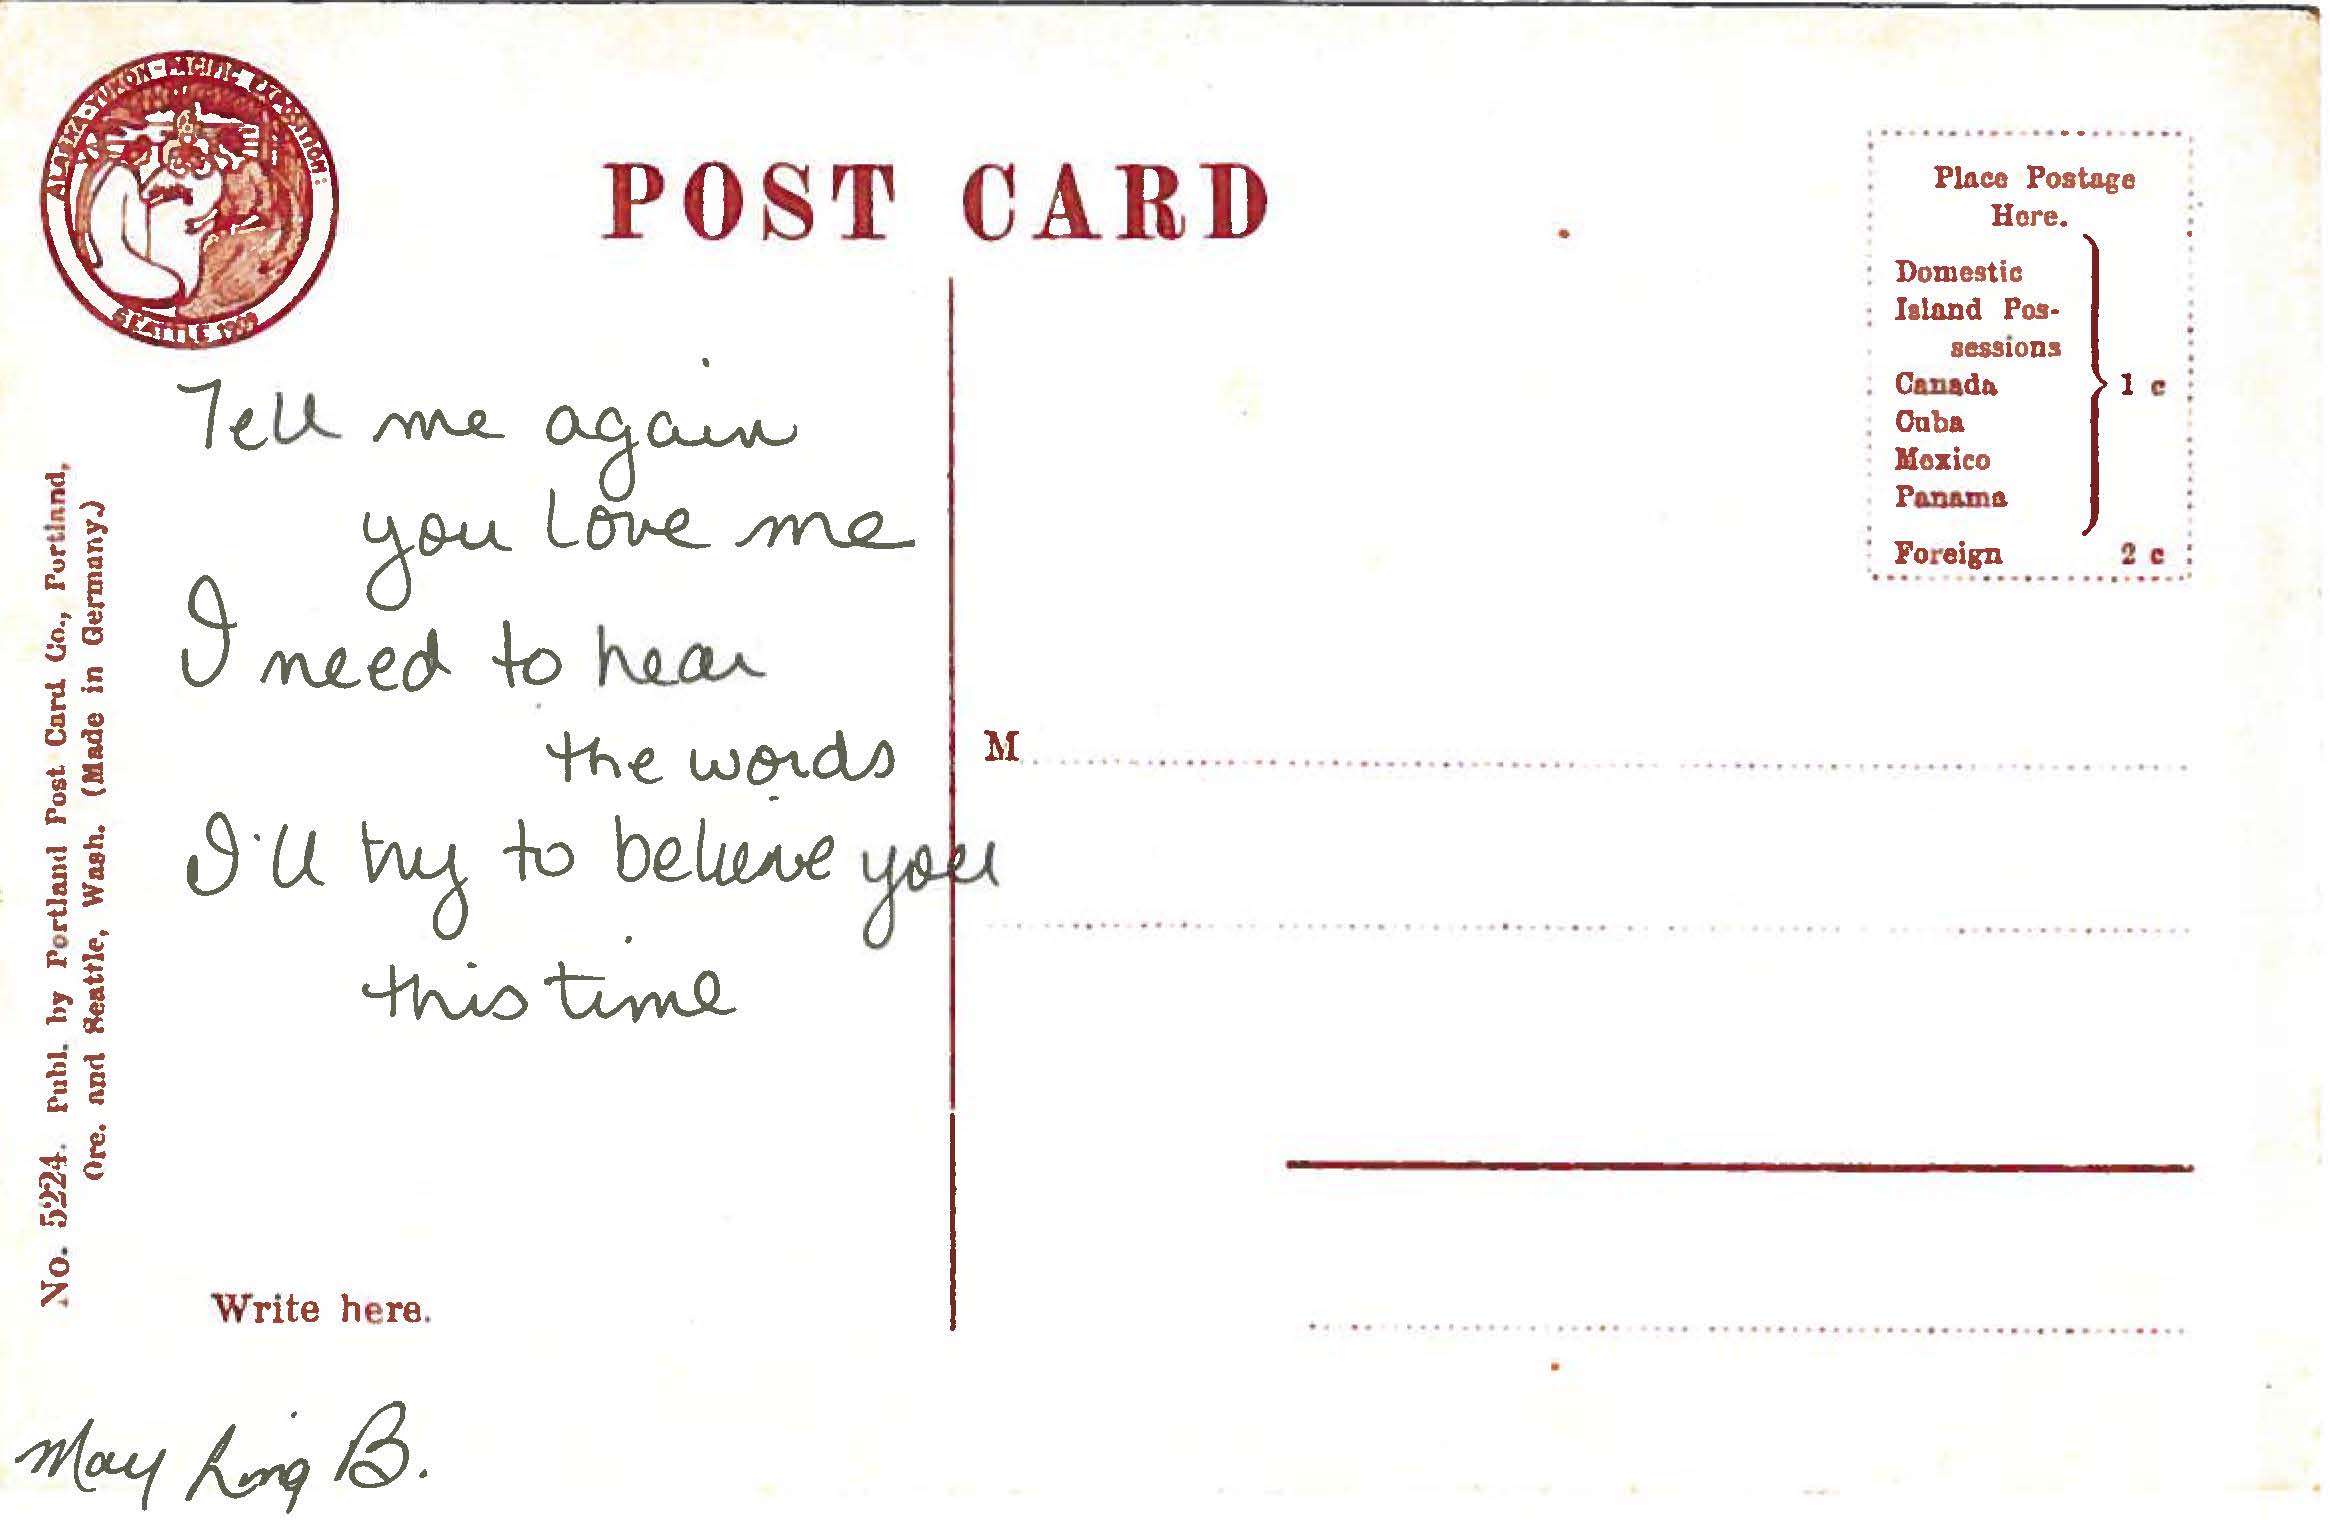 ALASKA-YUKON-PACIFIC EXPOSITION:
SEATTLE 1909
POST CARD
Place Postage
Here.
Domestic
Island Pos-
sessions
Canada
Cuba
Mexico
Panama
1 c
Foreign 2 c
Tell me again
you love me
I need to hear
the words
I'll try to believe you
this time
M
No. 5224. Publ. by Portland Post Card Co., Portland,
Ore. and Seattle, Wash. (Made in Germany.)
Write here.
May Ling B.